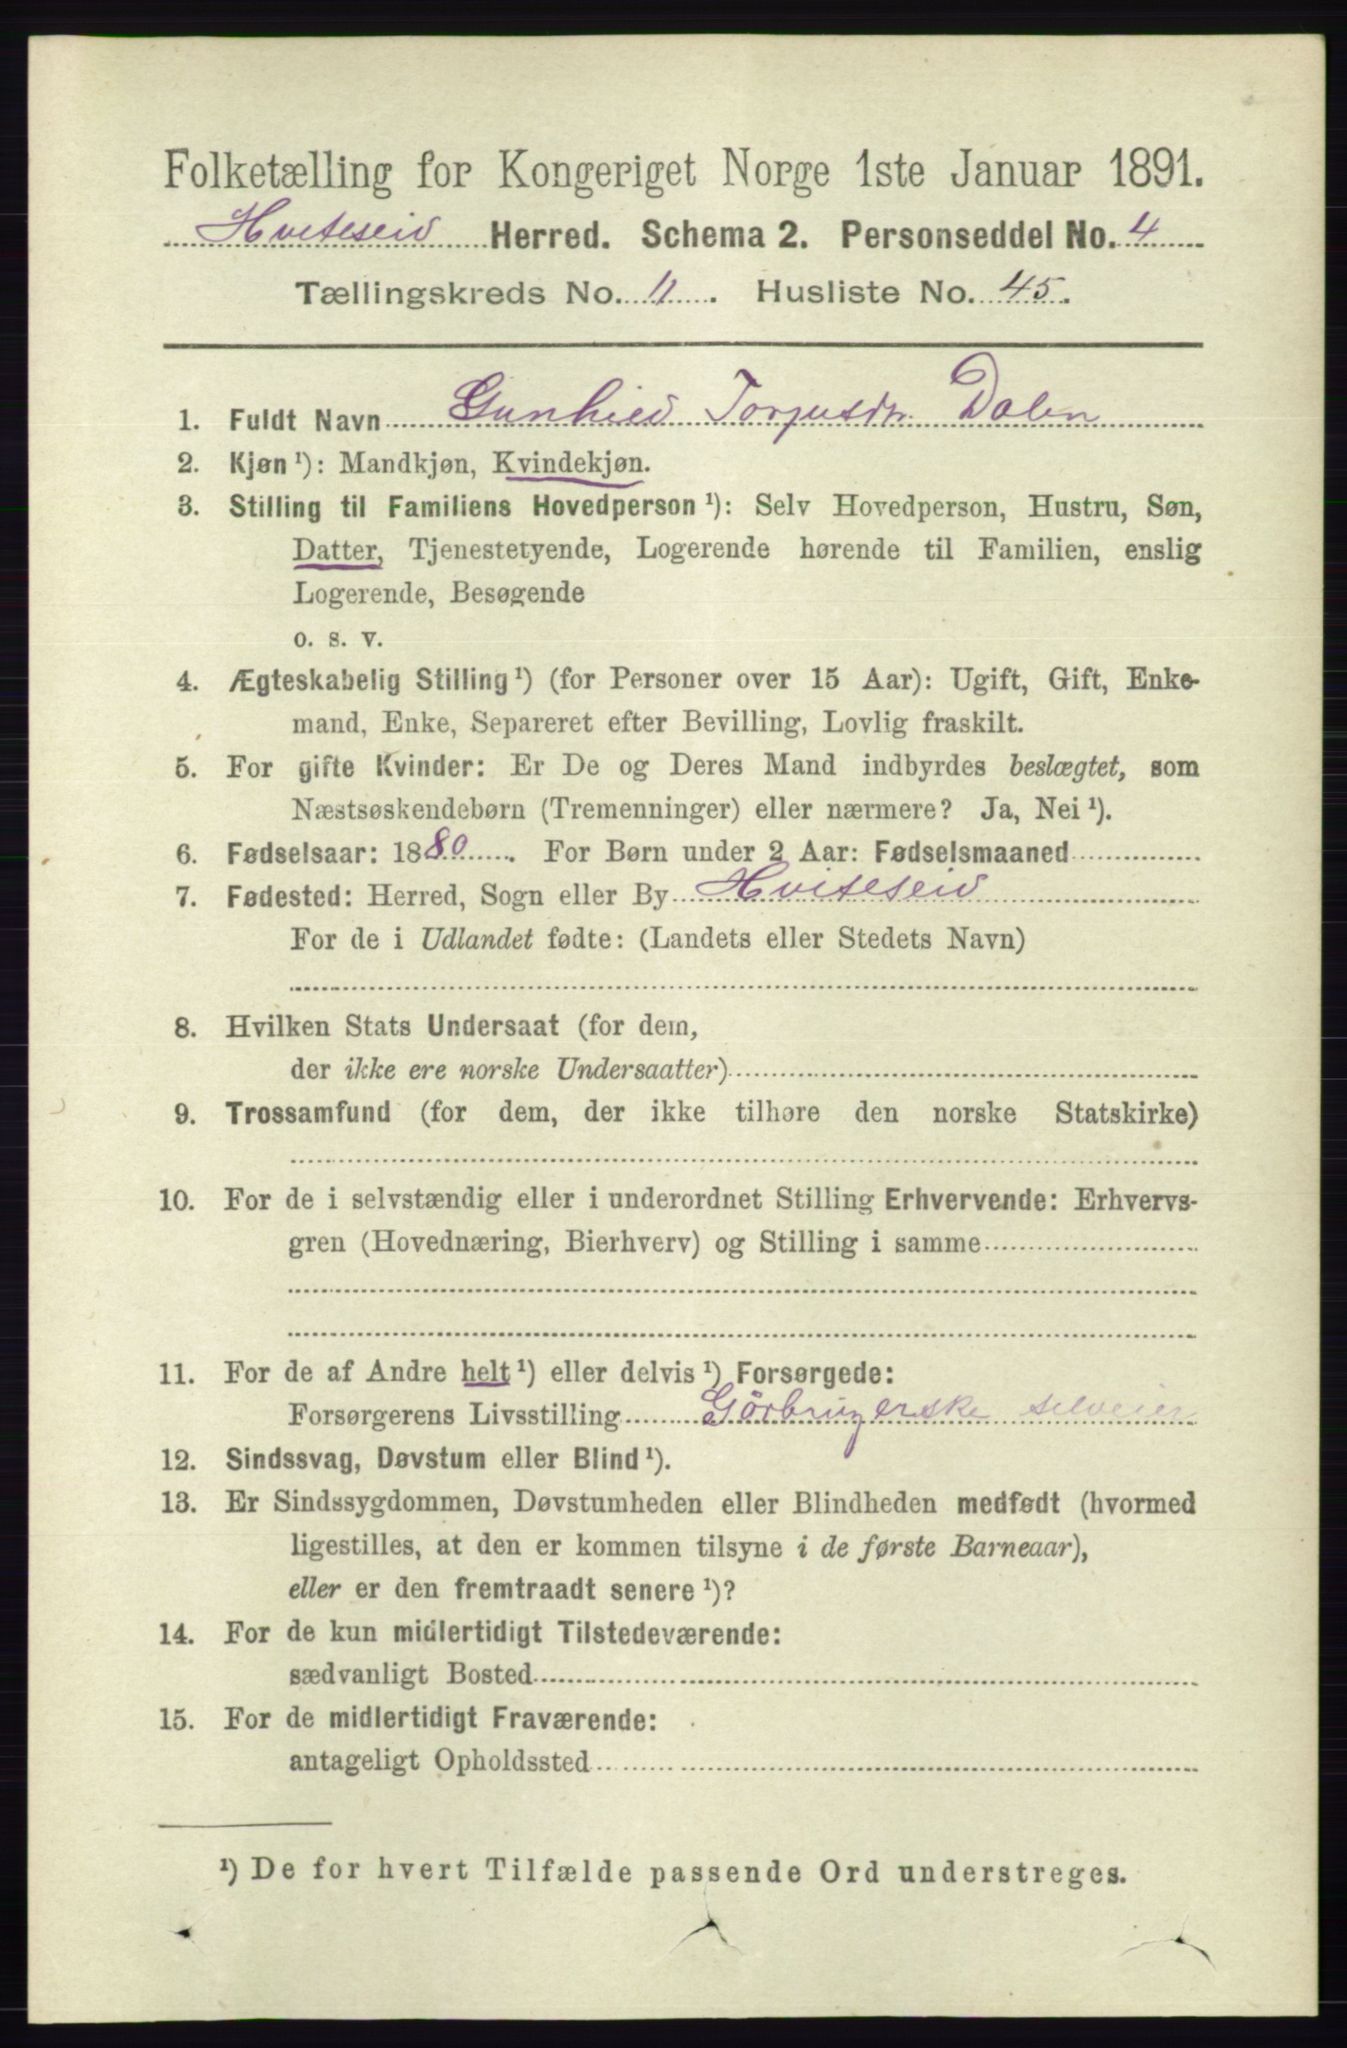 Folketælling for Kongeriget Norge 1ste Januar 1891.
Hviteseid Herred. Schema 2. Personseddel No. 4
Tællingskreds No. 11. Husliste No. 45.
1. Fuldt Navn Gunhild Torjusdr. Dalen
2. Kjøn ¹): Mandkjøn, Kvindekjøn.
3. Stilling til Familiens Hovedperson ¹): Selv Hovedperson, Hustru, Søn,
Datter, Tjenestetyende, Logerende hørende til Familien, enslig
Logerende, Besøgende
o. s. v.
4. Ægteskabelig Stilling ¹) (for Personer over 15 Aar): Ugift, Gift, Enke-
mand, Enke, Separeret efter Bevilling, Lovlig fraskilt.
5. For gifte Kvinder: Er De og Deres Mand indbyrdes beslægtet, som
Næstsøskendebørn (Tremenninger) eller nærmere? Ja, Nei ¹).
6. Fødselsaar: 1880. For Børn under 2 Aar: Fødselsmaaned
7. Fødested: Herred, Sogn eller By Hviteseid
For de i Udlandet fødte: (Landets eller Stedets Navn)
8. Hvilken Stats Undersaat (for dem,
der ikke ere norske Undersaatter)
9. Trossamfund (for dem, der ikke tilhøre den norske Statskirke)
10. For de i selvstændig eller i underordnet Stilling Erhvervende: Erhvervs-
gren (Hovednæring, Bierhverv) og Stilling i samme
11. For de af Andre helt ¹) eller delvis ¹) Forsørgede:
Forsørgerens Livsstilling Görbrugerske selveier
12. Sindssvag, Døvstum eller Blind ¹).
13. Er Sindssygdommen, Døvstumheden eller Blindheden medfødt (hvormed
ligestilles, at den er kommen tilsyne i de første Barneaar),
eller er den fremtraadt senere ¹)?
14. For de kun midlertidigt Tilstedeværende:
sædvanligt Bosted
15. For de midlertidigt Fraværende:
antageligt Opholdssted
¹) De for hvert Tilfælde passende Ord understreges.